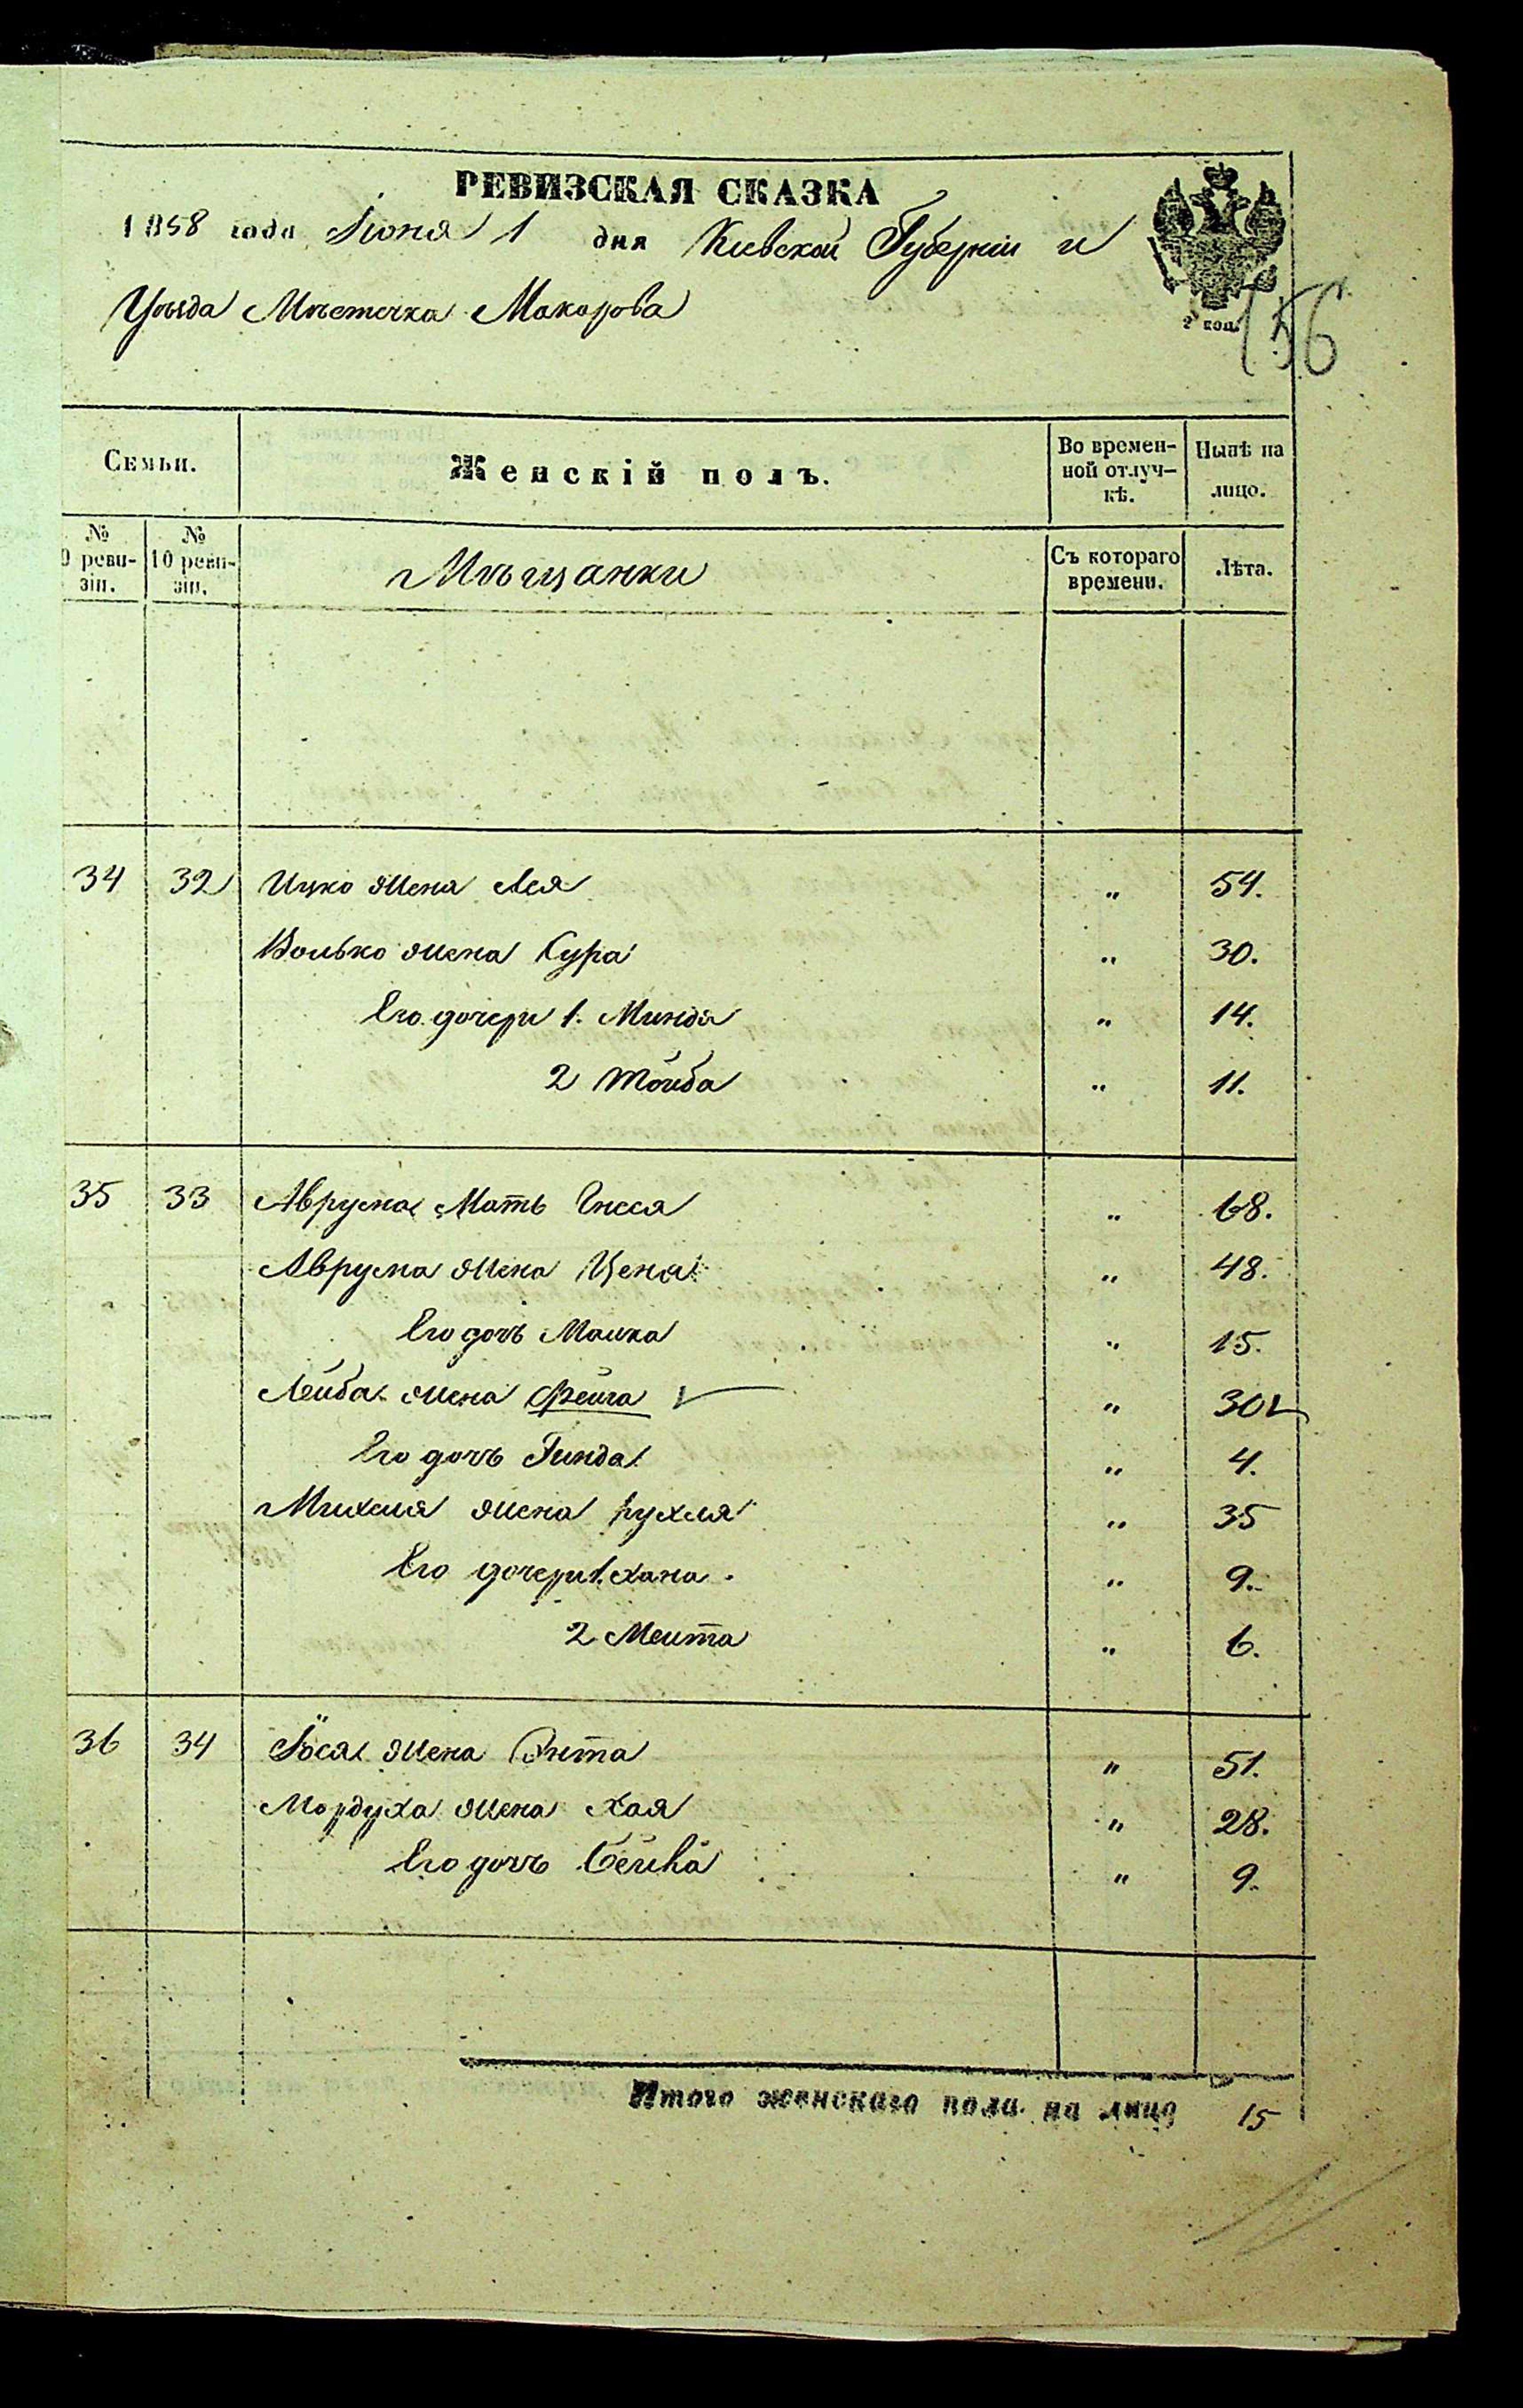 РЕВИЗСКАЯ СКАЗКА
1858 года Іюня 1 дня Кіевской Губерніи и
Уѣзда Мѣстечка Макарова
2 коп.
156
Семьи. Женскій полъ. Во времен-ной отлуч-кѣ. Нынѣ на лицо.
№ 9 реви-зіи. № 10 реви-зіи. Мѣщанки Съ котораго времени. Лѣта.
34 32 Ицко жена Лея " 54.
Волько жена Сура " 30.
Его дочери 1. Минда " 14.
2 Тойба " 11.
35 33 Аврума Мать Гнеся " 68.
Аврума жена Цена " 48.
Его дочь Малка " 15.
Лейба жена Фейга " 30
Его дочь Гинда " 4.
Михеля жена рухля " 35
Его дочери 1. хана. " 9.
2 Меита " 6.
36 34 Іося жена Ента " 51.
Мордуха жена Хая " 28.
Его дочь " 9.
Итого женскаго пола на лицо 15